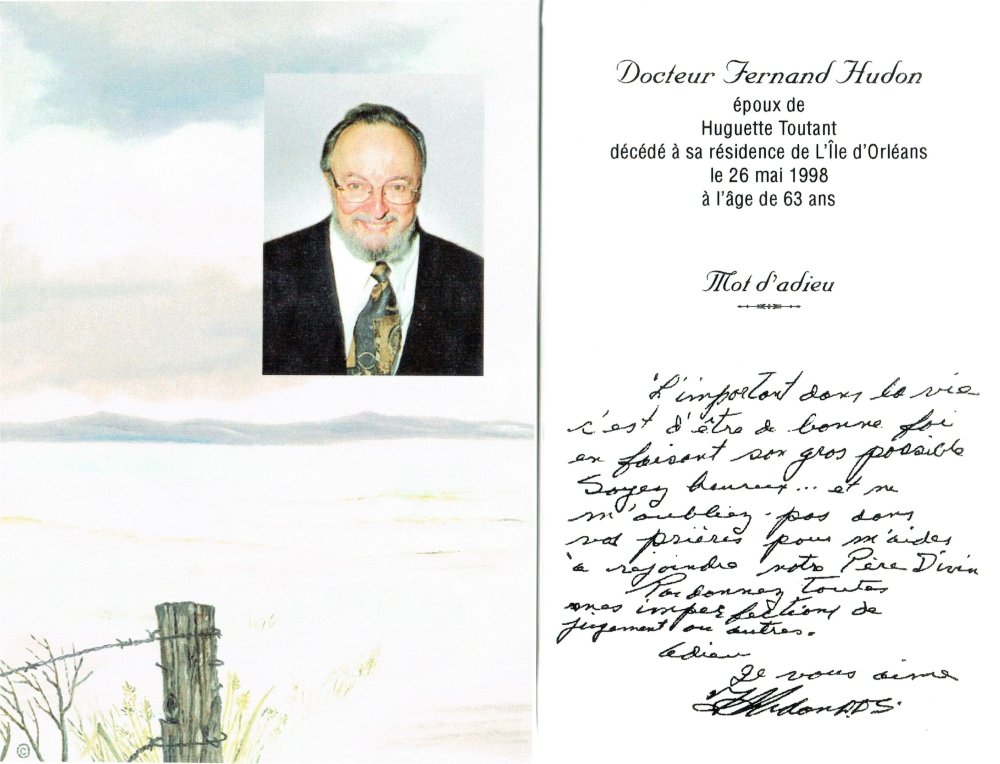 ©
Docteur Fernand Hudon
époux de
Huguette Toutant
décédé à sa résidence de L'Île d'Orléans
le 26 mai 1998
à l'âge de 63 ans
Mot d'adieu
L'important dans la vie
c'est d'être de bonne foi
en faisant son gros possible
Soyez heureux... et ne
m'oubliez pas dans
vos prières pour m'aider
à rejoindre notre Père Divin
Pardonnez toutes
mes imperfections de
jugement ou autres.
Adieu
Je vous aime
Hudon D.D.S.